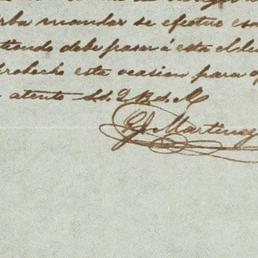 mandar se efectue esa
debe pasar á este
provecho esta ocasion para
atento S.S.Q.B.S.M.
Martinez